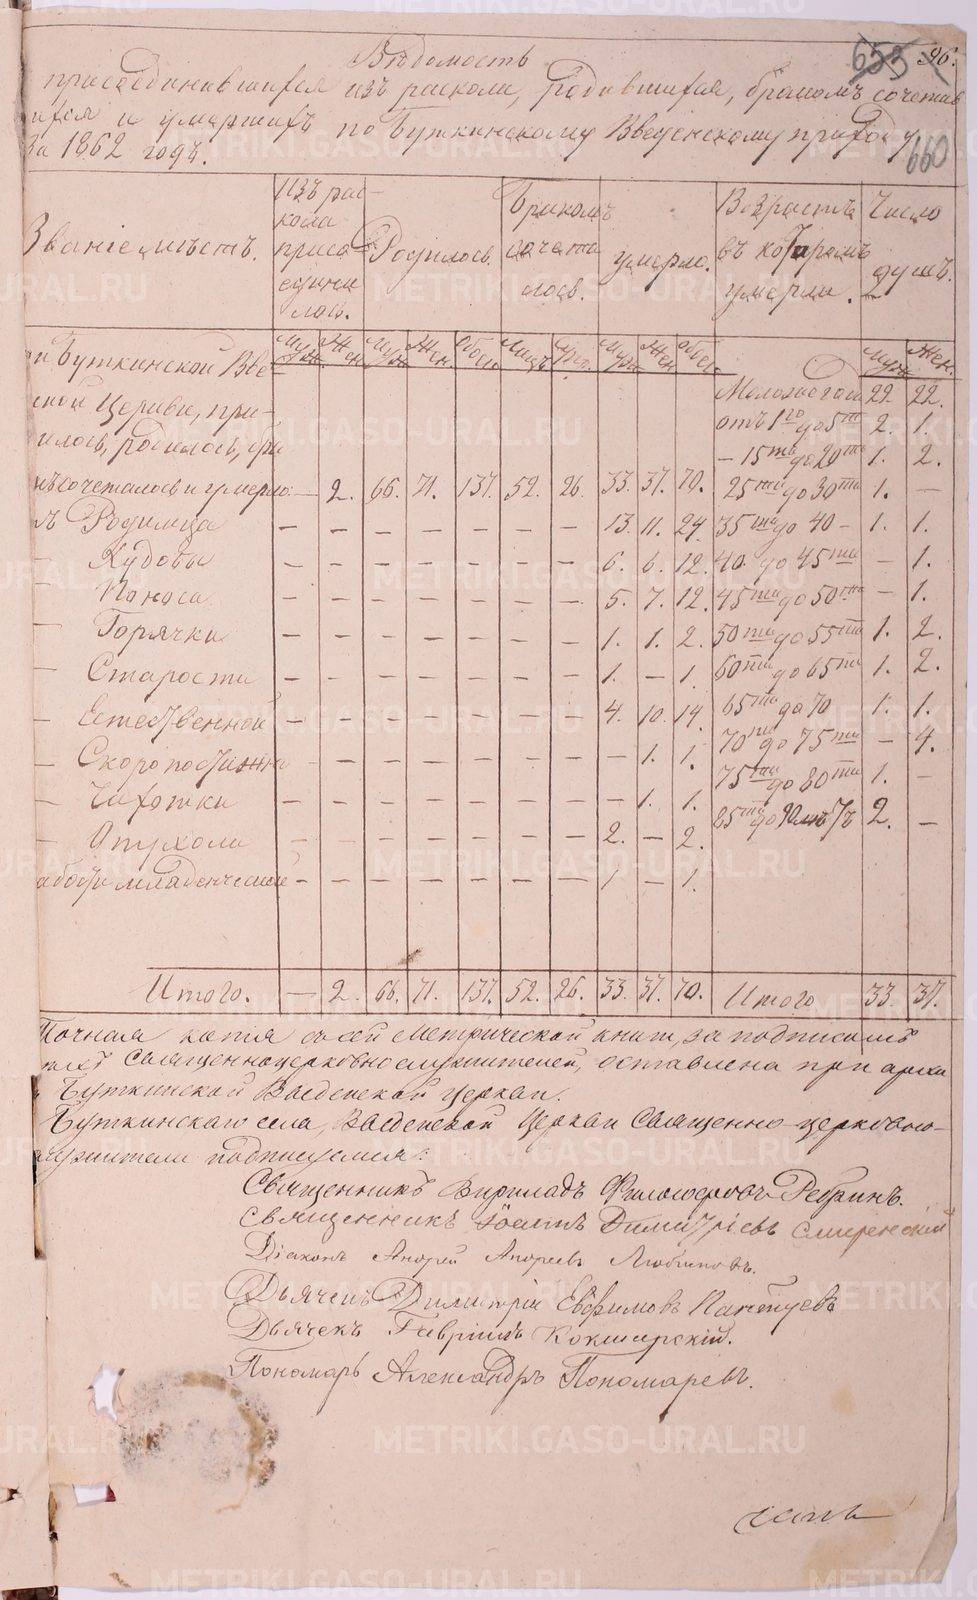 Вѣдомость
653 96.
присоединившихся изъ раскола, родившихся, бракомъ сочетав
шихся и умершихъ по Буткинскому Введенскому приходу
За 1862 годъ.
660
Званіе мѣстъ.
Изъ рас-
кола
присо
едини
лось.
Родилось.
Бракомъ
сочета
лось.
умерло.
Возрастъ
въ которомъ
умерли.
Число
душъ.
Муж Жен Муж Жен. Обоего Лицъ Муж Жен обоего Муж Жен.
Буткинской Вве
ской Церкви, при-
лось, родилось, бра
сочеталось и умерло — 2. 66. 71. 137. 52. 26. 33. 37. 70.
Родимца — — — — — — — 13. 11. 24.
— Худобы — — — — — — — 6. 6. 12.
Поноса — — — — — — — 5. 7. 12.
— Горячки — — — — — — — 1. 1. 2.
— Старости — — — — — — — 1. — 1.
— Естественной — — — — — — — 4. 10. 14.
— Скоропостижно — — — — — — — — 1. 1.
— Чахотки — — — — — — — — 1. 1.
— Опухоли — — — — — — — 2. — 2.
младенческой — — — — — — — 1 — 1.
Моложе года 22. 22.
отъ 1го до 5ти 2. 1.
— 15ти до 20ти 1. 2.
25ти до 30ти 1. —
35ти до 40 — 1. 1.
40. до 45ти — 1.
45ти до 50ти — 1.
50ти до 55ти 1. 2.
60ти до 65ти 1. 2.
65ти до 70 1. 1.
70ти до 75ти — 4.
75ти до 80ти 1. —
85ти до 90 2. —
Итого. — 2. 66. 71. 137. 52. 26. 33. 37. 70. Итого 33. 37.
Точная копія съ сей Метрической книги, за подписомъ
Священноцерковнослужителей, оставлена при архи
Буткинской Введенской церкви.
Буткинскаго села, Введенской Церкви Священно-церковно-
служители подписуемся:
Священникъ Философовъ Ребринъ.
Священникъ Іоаннъ Димитріевъ Смиренскій
Діаконъ Андрей Андреевъ Любимовъ.
Дьячекъ Димитрій Евфимовъ Пантуевъ
Дьячекъ Гавріилъ Кокшарскій.
Пономарь Александръ Пономаревъ.
METRIKI.GASO-URAL.RU